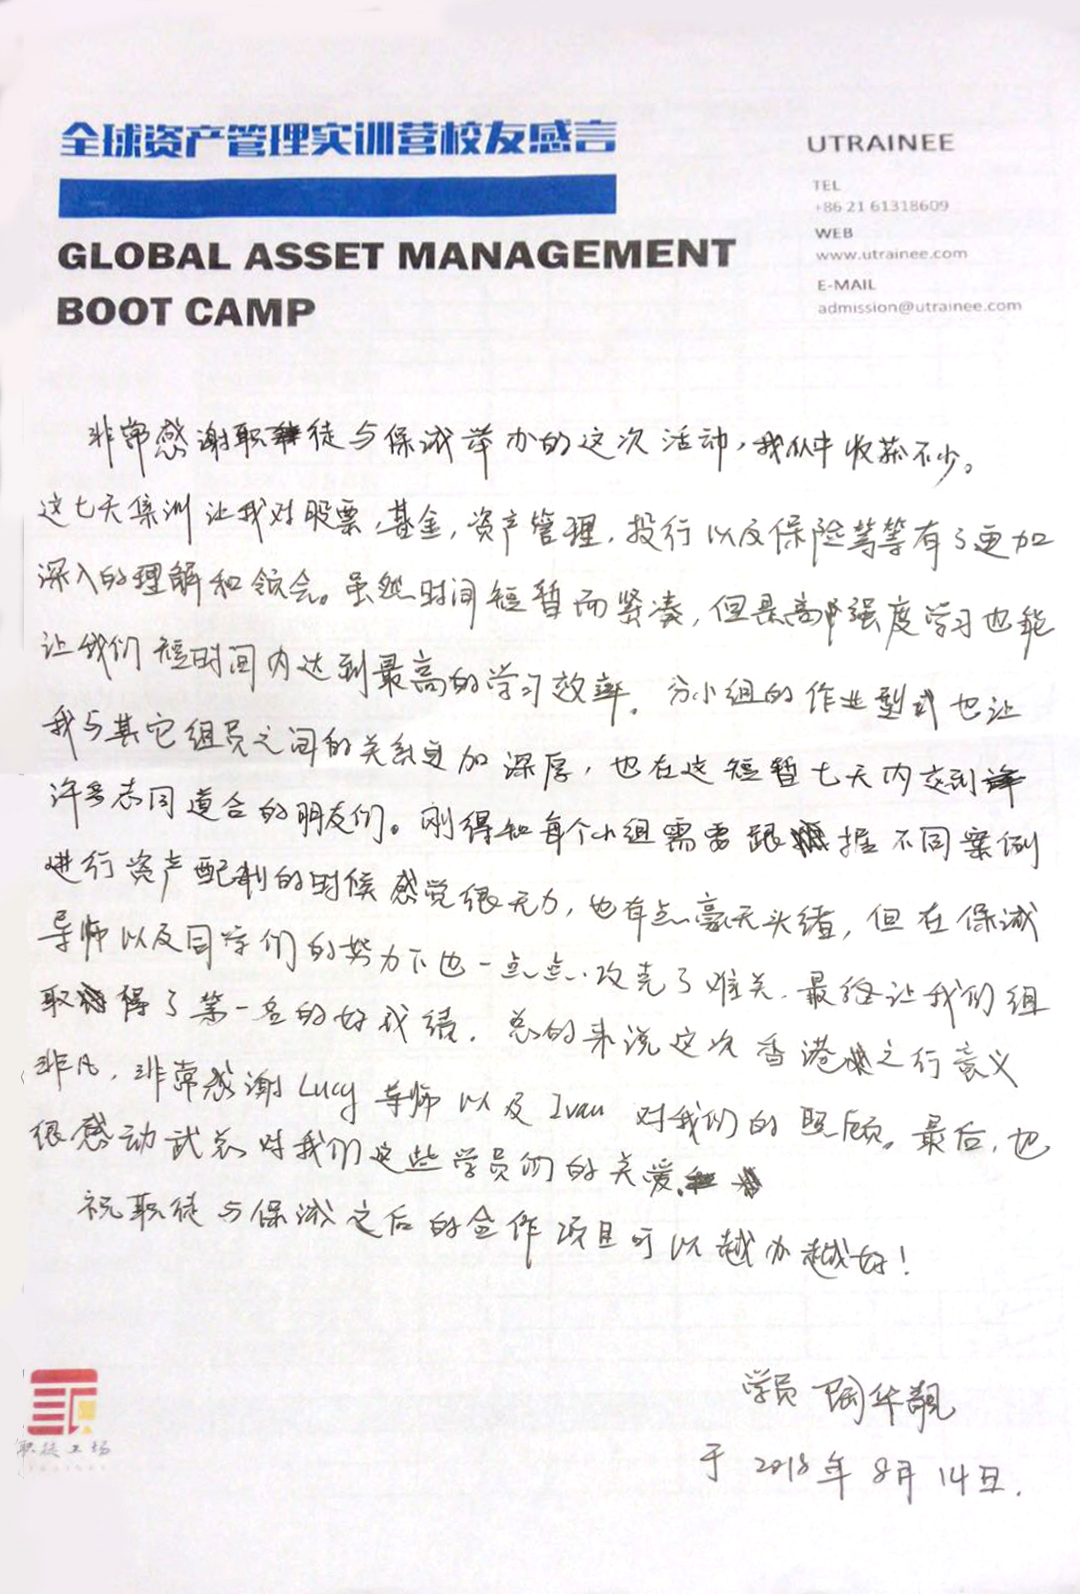 全球资产管理实训营校友感言
GLOBAL ASSET MANAGEMENT
BOOT CAMP
UTRAINEE
TEL
+86 21 61318609
WEB
www.utrainee.com
E-MAIL
admission@utrainee.com
非常感谢职徒与保诚举办的这次活动，我从中收获不少。
这七天集训让我对股票，基金，资产管理，投行以及保险等等有了更加
深入的理解和领会。虽然时间短暂而紧凑，但是高强度学习也能
让我们短时间内达到最高的学习效率。分小组的作业型式也让
我与其它组员之间的关系更加深厚，也在这短暂七天内交到
许多志同道合的朋友们。刚得知每个小组需要跟握不同案例
进行资产配制的时候感觉很无力，也有点毫无头绪，但在保诚
导师以及同学们的努力下也一点点攻克了难关，最终让我们组
取得了第一名的好成绩。总的来说这次香港之行意义
非凡，非常感谢Lucy导师以及Ivan对我们的照顾。最后，也
很感动武总对我们这些学员们的关爱。
祝职徒与保诚之后的合作项目可以越办越好！
学员 陶华
于 2018年8月14日.
职徒工场